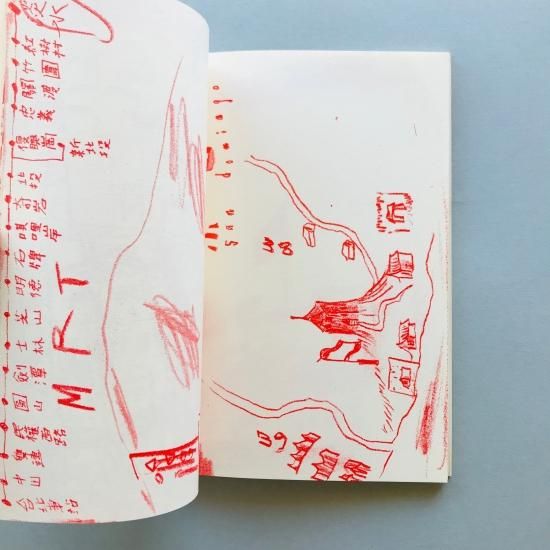 淡水
紅樹林
竹圍
關渡
忠義
復興崗
新北投
北投
奇岩
唭哩岸
石牌
明德
芝山
士林
劍潭
圓山
民權西路
雙連
中山
台北車站
MRT
san domingo